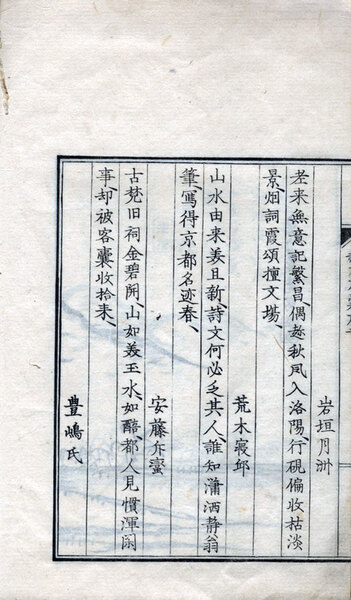 岩垣月洲
老来無意記繁昌、偶趁秋風入洛陽、行硯偏收枯淡
景、烟詞霞頌擅文場、
荒木寝邱
山水由来美且新、詩文何必乏其人、誰知瀟洒静翁
筆、寫得京都名迹春、
安藤斥蠻
古梵旧祠金碧開、山如美玉水、如醅都人見慣渾閑
事、却被客囊收拾来、
豊嶋氏